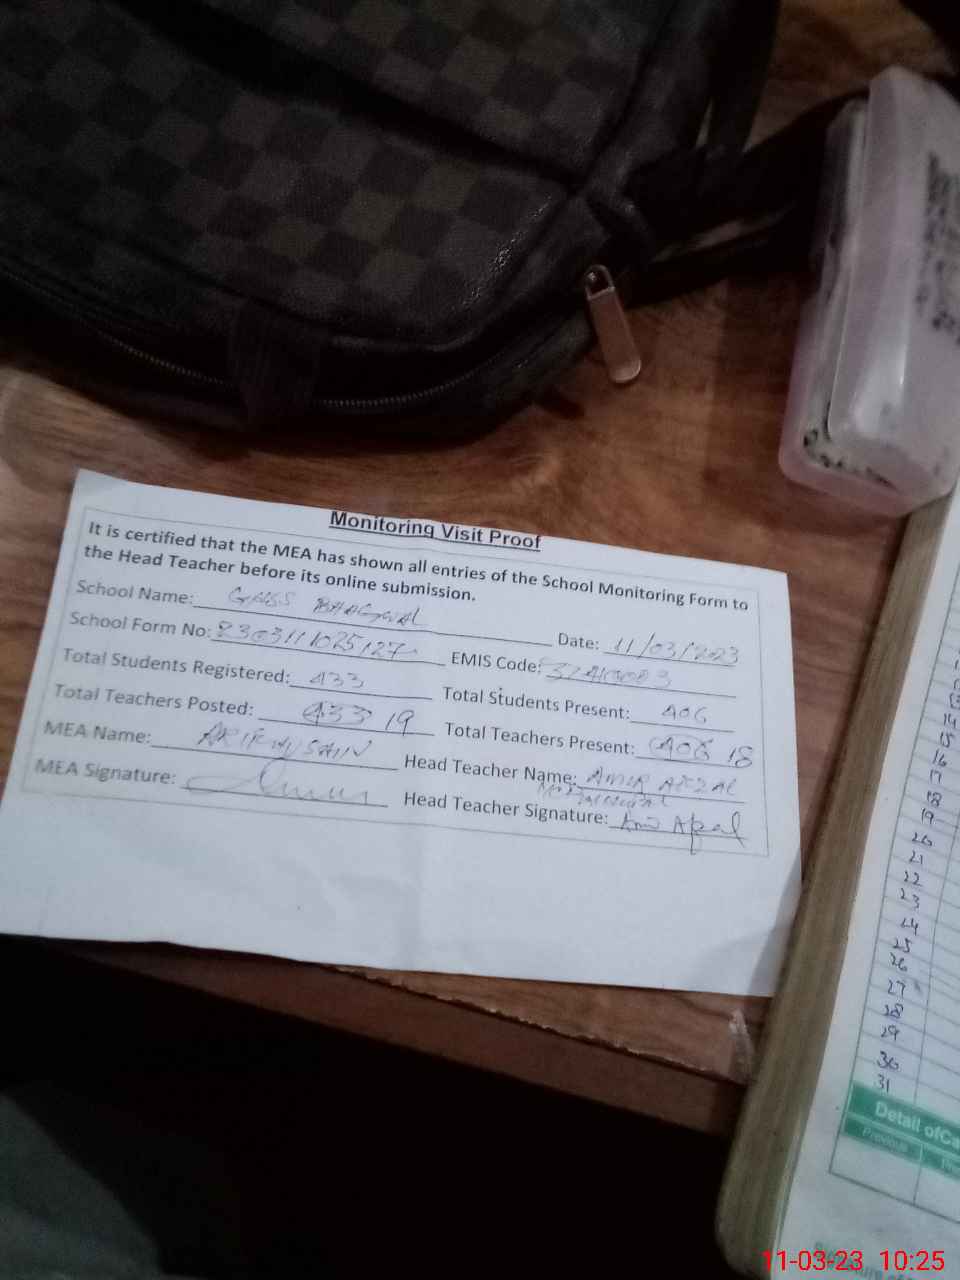 Monitoring Visit Proof
It is certified that the MEA has shown all entries of the School Monitoring Form to
the Head Teacher before its online submission.
School Name: GHSS BHAGWAL Date: 11/03/2023
School Form No: 230311025127 EMIS Code:
Total Students Registered: 433 Total Students Present: 406
Total Teachers Posted: 433 19 Total Teachers Present: 406 18
MEA Name: ARIF HUSSAIN Head Teacher Name: AMIR AFZAL
MEA Signature: Head Teacher Signature: Amir Afzal
14
15
16
17
18
19
20
21
22
23
24
25
26
27
28
29
30
31
Detail of Ca
Previous
11-03-23 10:25